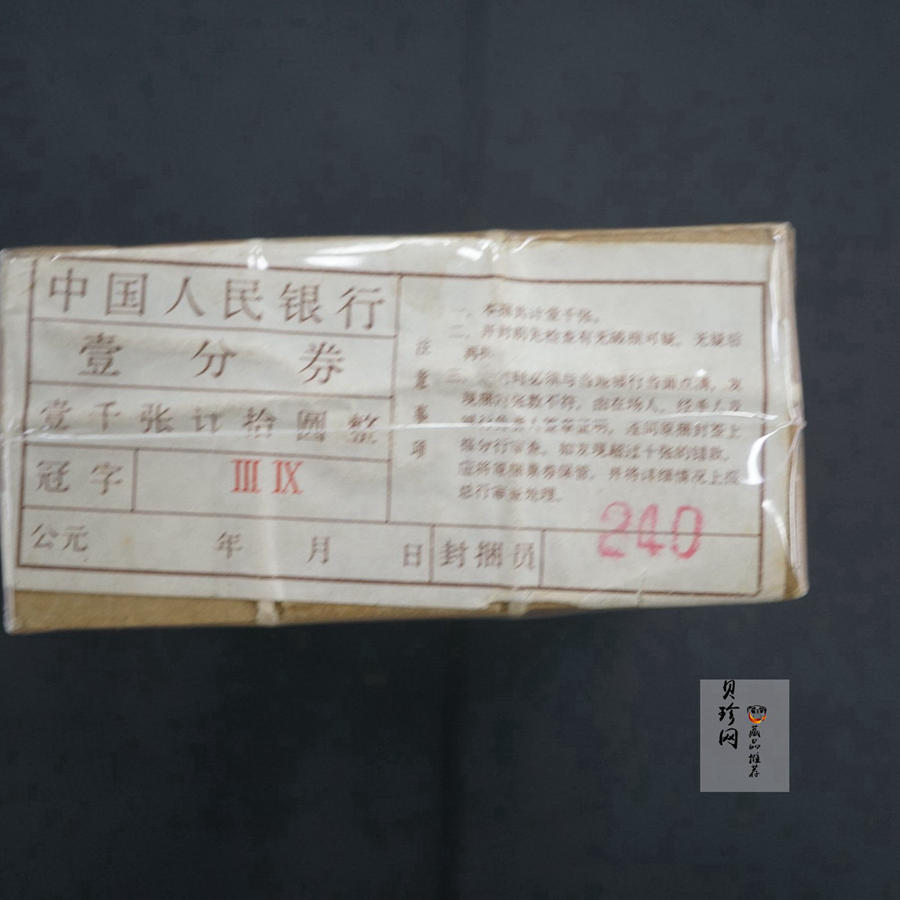 中国人民银行
壹分券
壹千张计拾圆整
冠字 III IX
公元 年 月 日 封捆员 240
注意事项
一、本捆共计壹千张。
二、开封前先检查有无破损可疑，无疑后
再拆
三、封必须与当地银行当面点清，发
现捆内张数不符，由在场人、经手人及
银行负责人签章证明，连同原捆封签上
报分行审查，如发现超过十张的错款，
应将原捆票券保管，并将详细情况上报
总行审查处理。
贝珍网
藏品推荐